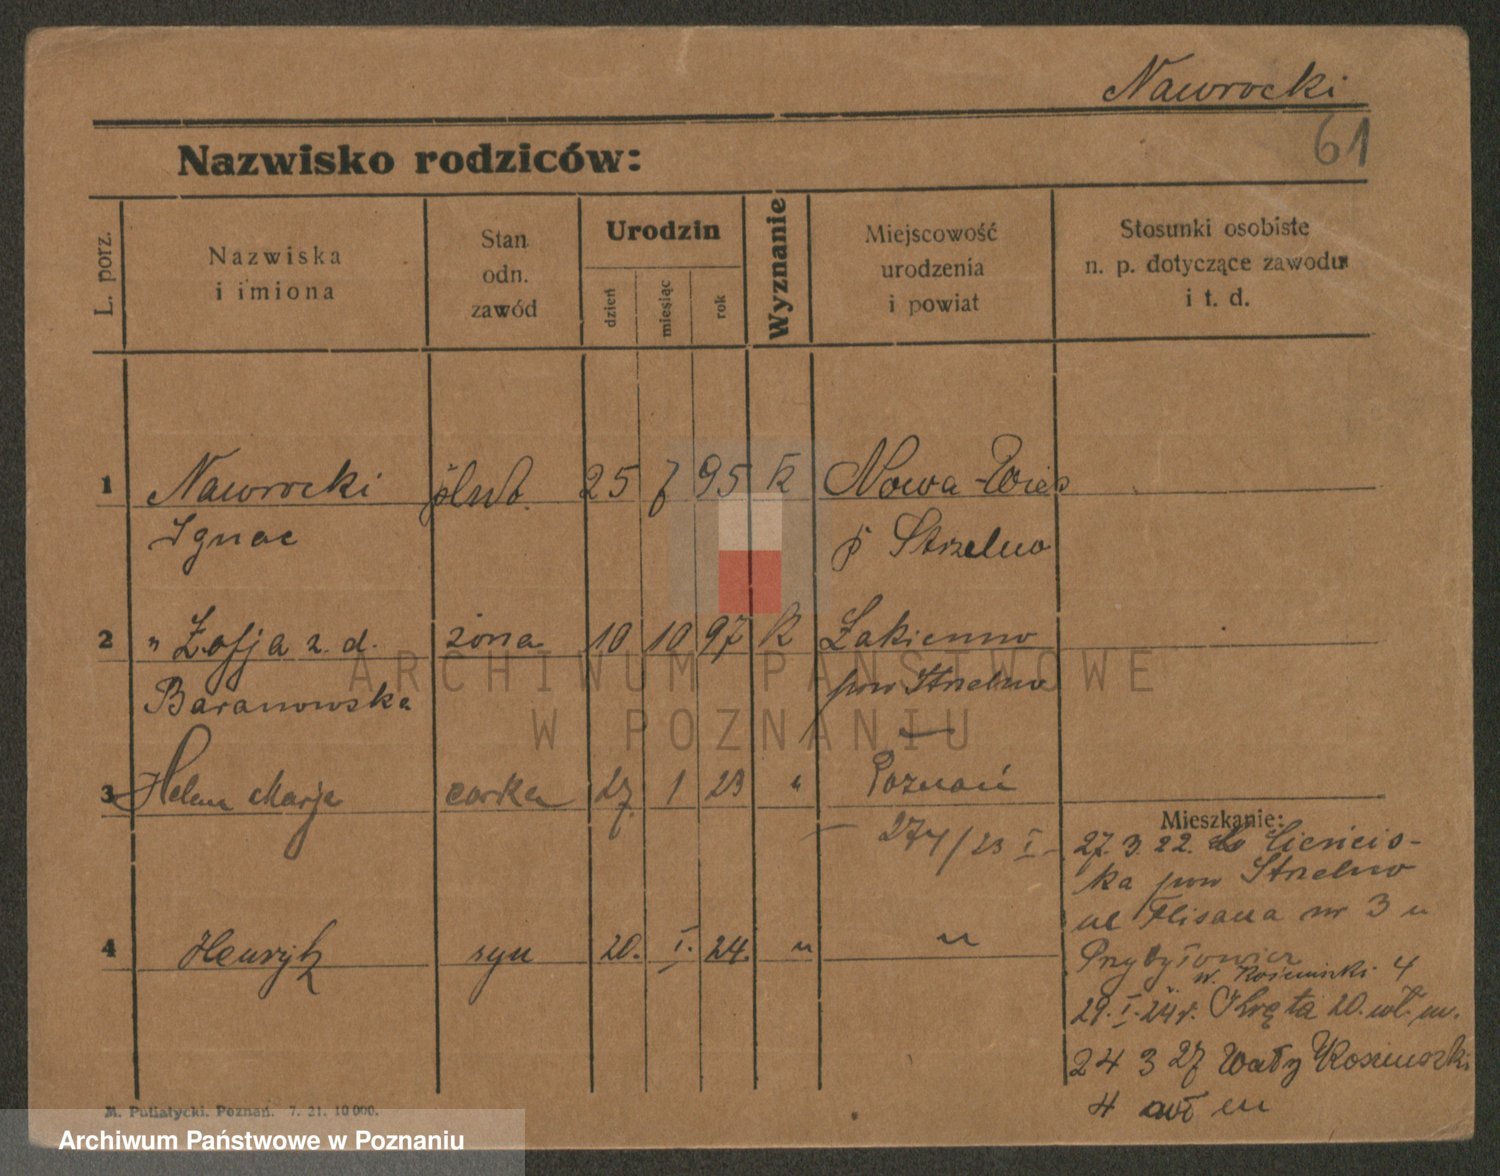 Nawrocki
61
Nazwisko rodziców:
L. porz.
Nazwiska
i imiona
Stan
odn.
zawód
Urodzin
dzień
miesiąc
rok
Wyznanie
Miejscowość
urodzenia
i powiat
Stosunki osobiste
n. p. dotyczące zawodu
i t. d.
1 Nawrocki 25 7 95 K Nowa-Wieś
Ignac p Strzelno
2 " Zofja z. d. żona 10 10 97 K
Baranowska pow Strzelno
3 Helena Marja corka 27. 1 23 " Poznań
274/23 I
Mieszkanie:
27. 3. 22.
ka pow Strzelno
ul nr 3 u
4 Henryk syn 20. I. 24. " "
4
29. I. 24r. Kręta 20. wł. m.
24 3 27 Wały
4 wł m
M. Putiatycki. Poznań. 7. 21. 10 000.
ARCHIWUM PAŃSTWOWE
W POZNANIU
Archiwum Państwowe w Poznaniu